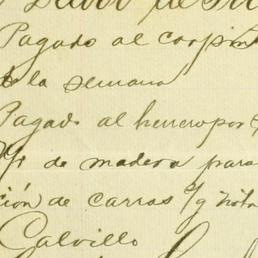 Pagado al carpin
de la semana
Pagado al herrero por
de madera para
ción) de carros
Calvillo